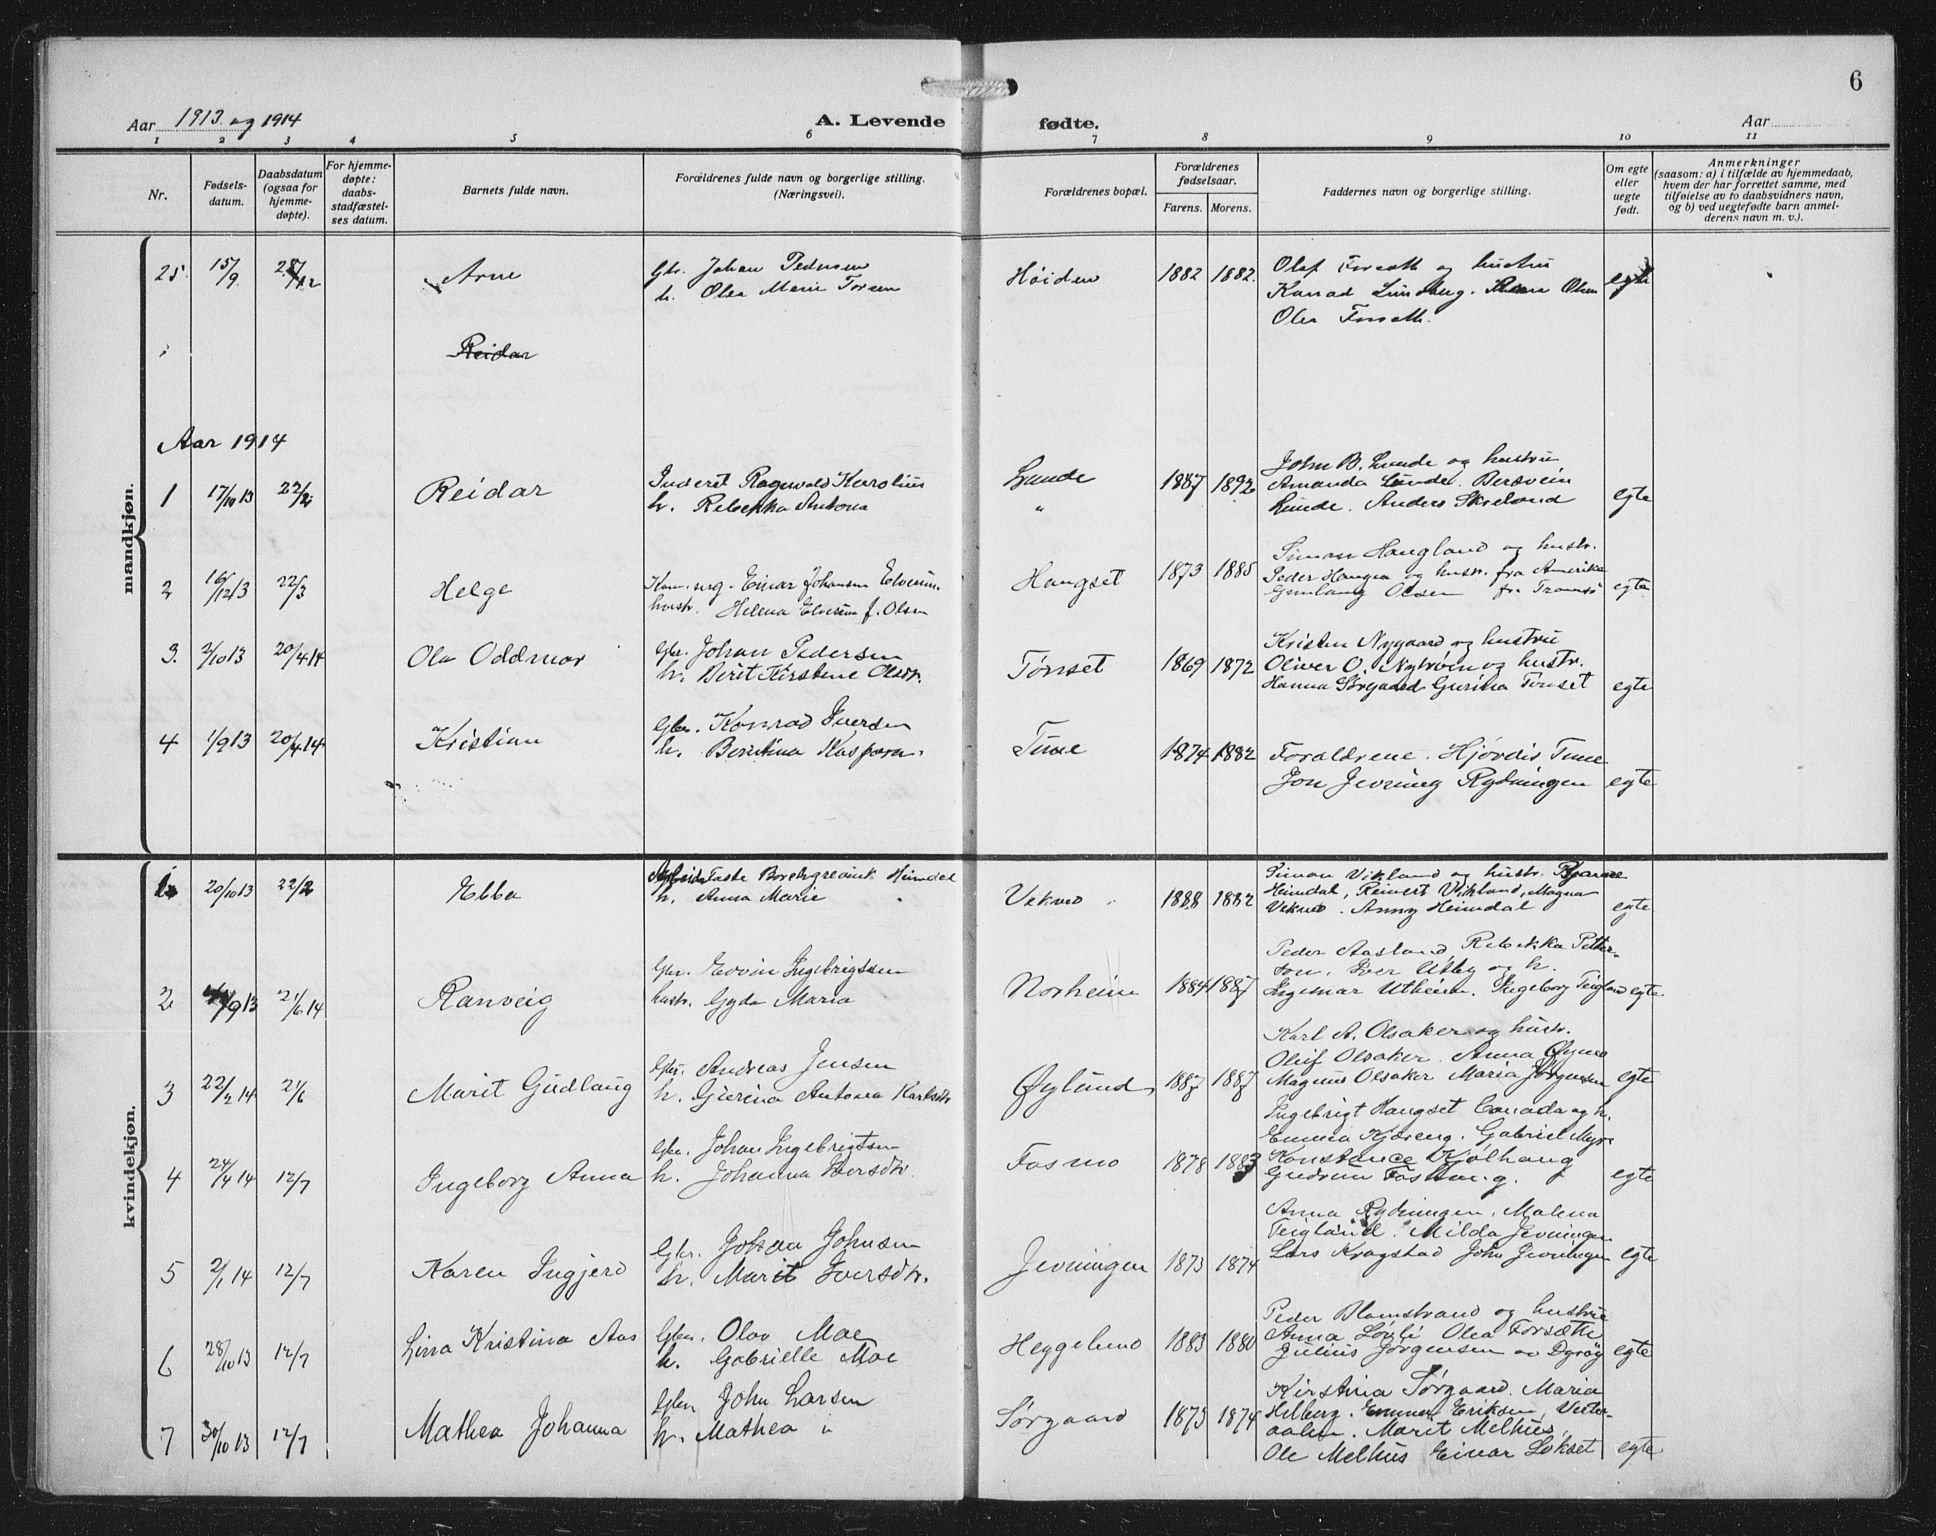 6
Aar 1913 og 1914
A. Levende fødte.
Aar
1 2 3 4 5 6 7 8 9 10 11
Nr.
Fødsels-
datum.
Daabsdatum
(ogsaa for
hjemme-
døpte).
For hjemme-
døpte:
daabs-
stadfæstel-
ses datum.
Barnets fulde navn.
Forældrenes fulde navn og borgerlige stilling.
(Næringsvei).
Forældrenes bopæl.
Forældrenes
fødselsaar.
Farens. Morens.
Faddernes navn og borgerlige stilling.
Om egte
eller
uegte
født.
Anmerkninger
(saasom: a) i tilfælde av hjemmedaab,
hvem der har forrettet samme, med
tilføielse av to daabsvidners navn,
og b) ved uegtefødte barn anmel-
derens navn m. v.).
mandkjøn.
25. 15/9 Arne
Gbr. Johan Pedersen
h. Olea Marie
Høiden 1882 1882.
Olaf Forseth og hustru
Konrad Lundberg. Olsen
Olea Forseth.
egte
Reidar
Aar 1914
1 17/10 13 22/2 Reidar
Inderst Ragnvald Karolius
h. Rebekka Antona
Lunde 1887 1892
"
John B. Lunde og hustru
Amanda Lunde.
Lunde. Anders
egte
2 16/12 13 22/3 Helge
Einar Johansen Elverum
hustr. Helena Elverum f. Olsen
Haugset 1873 1885
Simon Haugland og hustr.
Peder Haugen og hustr. fra Amerika
Gunlaug Olsen fr. Tromsø
egte
3. 2/10 13 20/4 14 Ola Oddmar
Gbr. Johan Pedersen
h. Berit Kirstine Olsdtr.
Tønset 1869 1872
Kristen Nygaard og hustru
Oliver O. og hustr.
Hanna Sørgaard Gurina Tønset
egte
4 1/9 13 20/4 14 Kristian
Gbr. Konrad Iversen
h. Berntina
Time 1874 1882
Forældrene. Hjørdis Time
Jon Jevning Rydningen
egte
kvindekjøn.
1 20/10 13 22/2 Ebba
h. Anna Marie "
Vekmo 1888 1882
Simon Vikland og hustr.
Heimdal, Reinert Vikland, Magna
Vekmo. Anny Heimdal
egte
2 9 13 21/6 14 Ranveig
Gbr. Edvin Ingebrigtsen
hustr. Gyda Maria
Norheim 1884 1887
Peder Aasland Rebekka Petter-
son. Iver Utby og h.
Ingemar Utheim. Ingeborg
egte
3 22/2 14 21/6 Marit Gudlaug
Gbr. Andreas Jensen
h. Gurina Antona Karlsdtr
Øylund 1887 1887
Karl A. Olsaker og hustr.
Oluf Olsaker. Anna
Magnus Olsaker Maria Jørgensen
egte
4 24/4 14 12/7 Ingeborg Anna
Gbr. Johan Ingebrigtsen
h. Johanna Iversdtr.
Fosmo 1878 1883
Ingebrigt Haugset Canada og h.
Emma Kjæreng. Gabriel Myre
Konstance Kjølhaug
Gudrun Fosmo. g.
egte
5 2/1 14 12/7 Karen Ingjerd
Gbr. Johan Johnsen
h. Marit Iversdtr.
Jevningen 1873 1874
Anna Rydningen. Malena
Teigland. Milda Jevningen
Lars Kragstad John Jevningen
egte
6 28/10 13 12/7 Lina Kristina Aas
Gbr. Olav Moe
h. Gabrielle Moe
Heggelund 1883 1880
Peder Blomstrand og hustru
Anna Sørli Olea Forsæth
Julius Jørgensen av Dyrøy
egte
7 30/10 13 12/7 Mathea Johanna
Gbr. John Larsen
h. Mathea
Sørgaard 1873 1874
Kirstina Sørgaard. Maria
Helberg. Eriksen, Vester-
aalen. Marit Melhus,
Ole Melhus Einar Løkset
egte